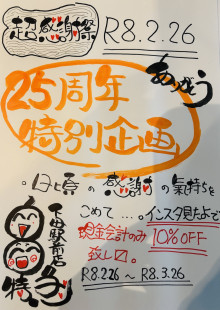 超感謝祭 R8.2.26
25周年
ありがとう
特別企画
。日頃の感謝の氣持ちを
こめて...。インスタ見たよで
現金会計のみ 10%OFF
致し〼。
R8.2.26 ~ R8.3.26
下田駅前店